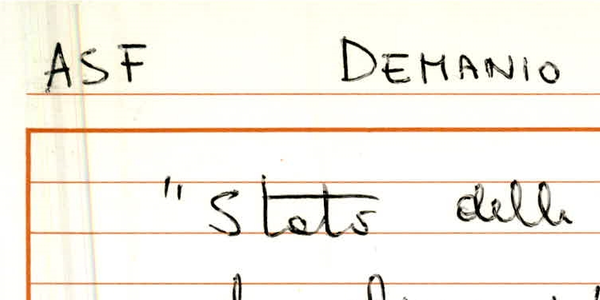 ASF DEMANIO
"Stato delle